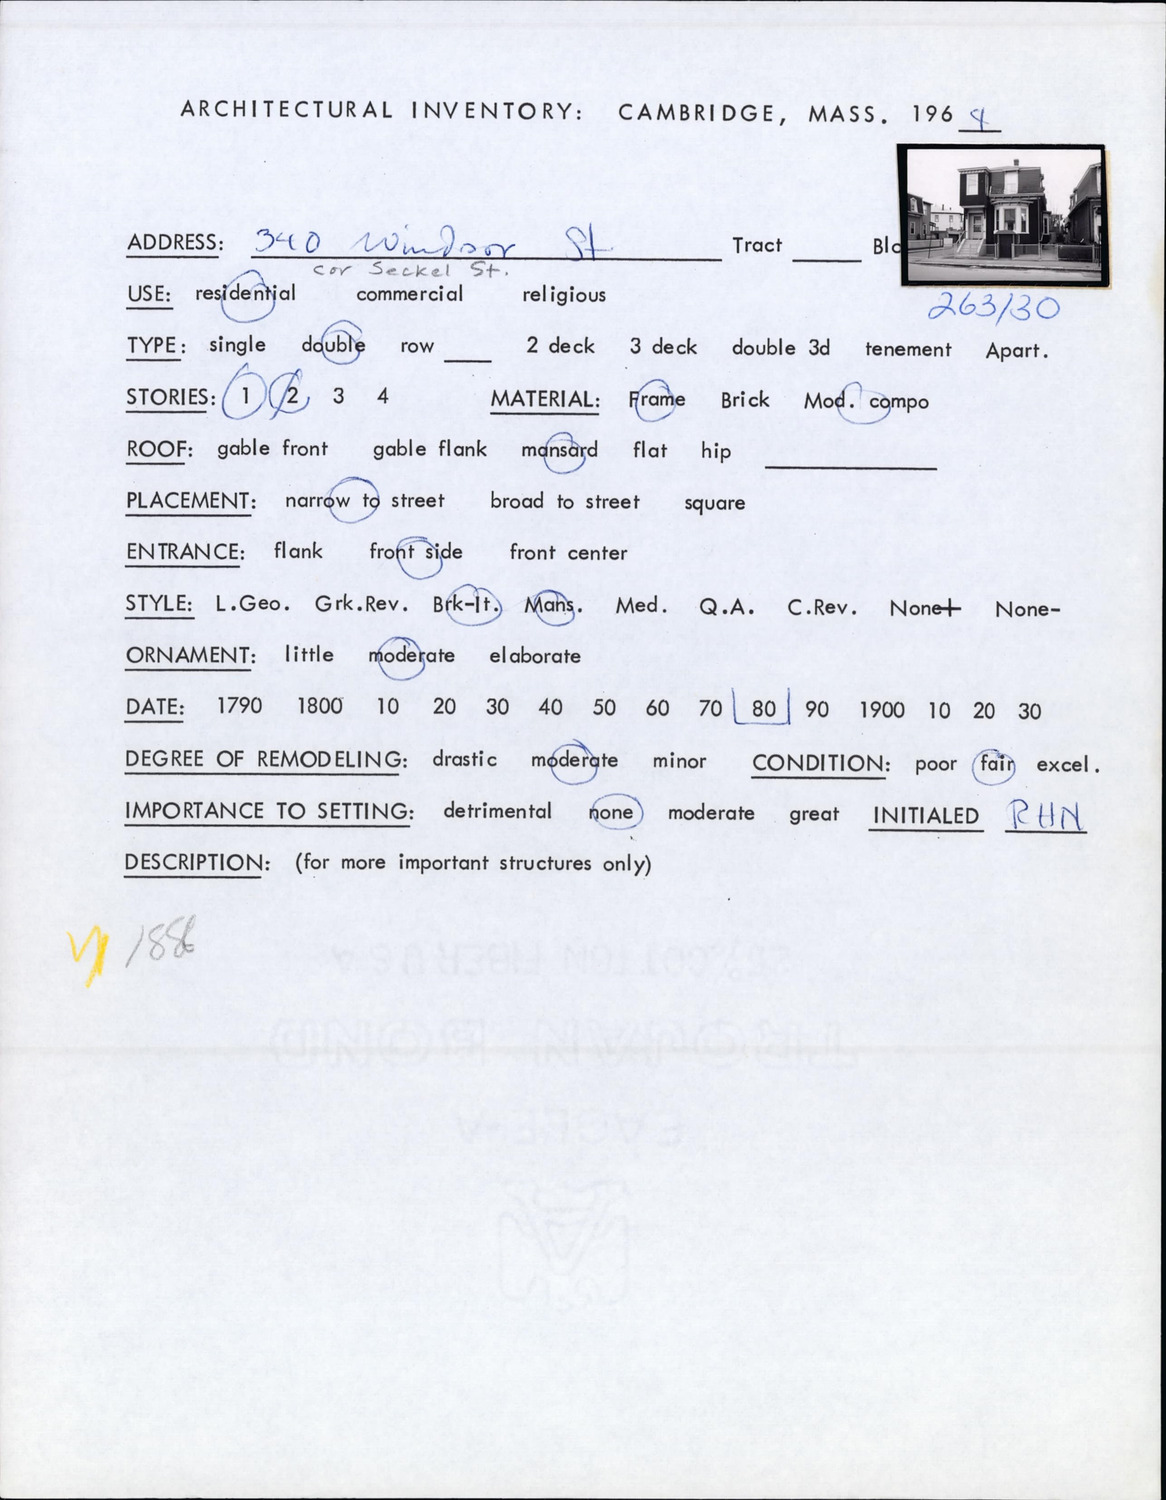 ARCHITECTURAL INVENTORY: CAMBRIDGE, MASS. 1964
ADDRESS: 340 Windsor St Tract ____ Blo
cor Seckel St.
263/30
USE: residential commercial religious
TYPE: single double row ____ 2 deck 3 deck double 3d tenement Apart.
STORIES: 1 2 3 4 MATERIAL: Frame Brick Mod. compo
ROOF: gable front gable flank mansard flat hip ____
PLACEMENT: narrow to street broad to street square
ENTRANCE: flank front side front center
STYLE: L.Geo. Grk.Rev. Brk-It. Mans. Med. Q.A. C.Rev. None+ None-
ORNAMENT: little moderate elaborate
DATE: 1790 1800 10 20 30 40 50 60 70 80 90 1900 10 20 30
DEGREE OF REMODELING: drastic moderate minor CONDITION: poor fair excel.
IMPORTANCE TO SETTING: detrimental none moderate great INITIALED RHN
DESCRIPTION: (for more important structures only)
1886